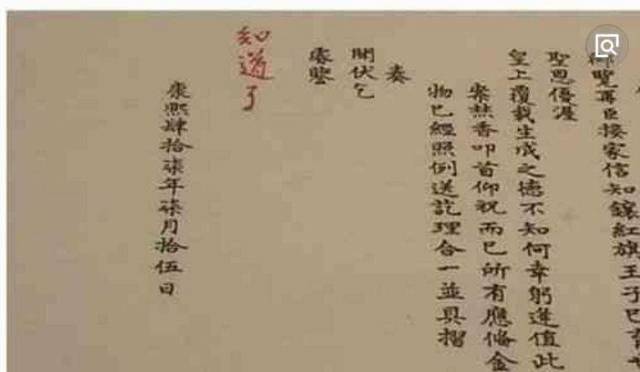 覽再臣接家信知鑲紅旗王子已
聖恩優渥
皇上覆載生成之德不知何幸躬逢值此
焚香叩首仰祝而已所有應備金
物已經照例送訖理合一並具摺
奏
聞伏乞
睿鑒
知道了
康熙肆拾柒年柒月拾伍日